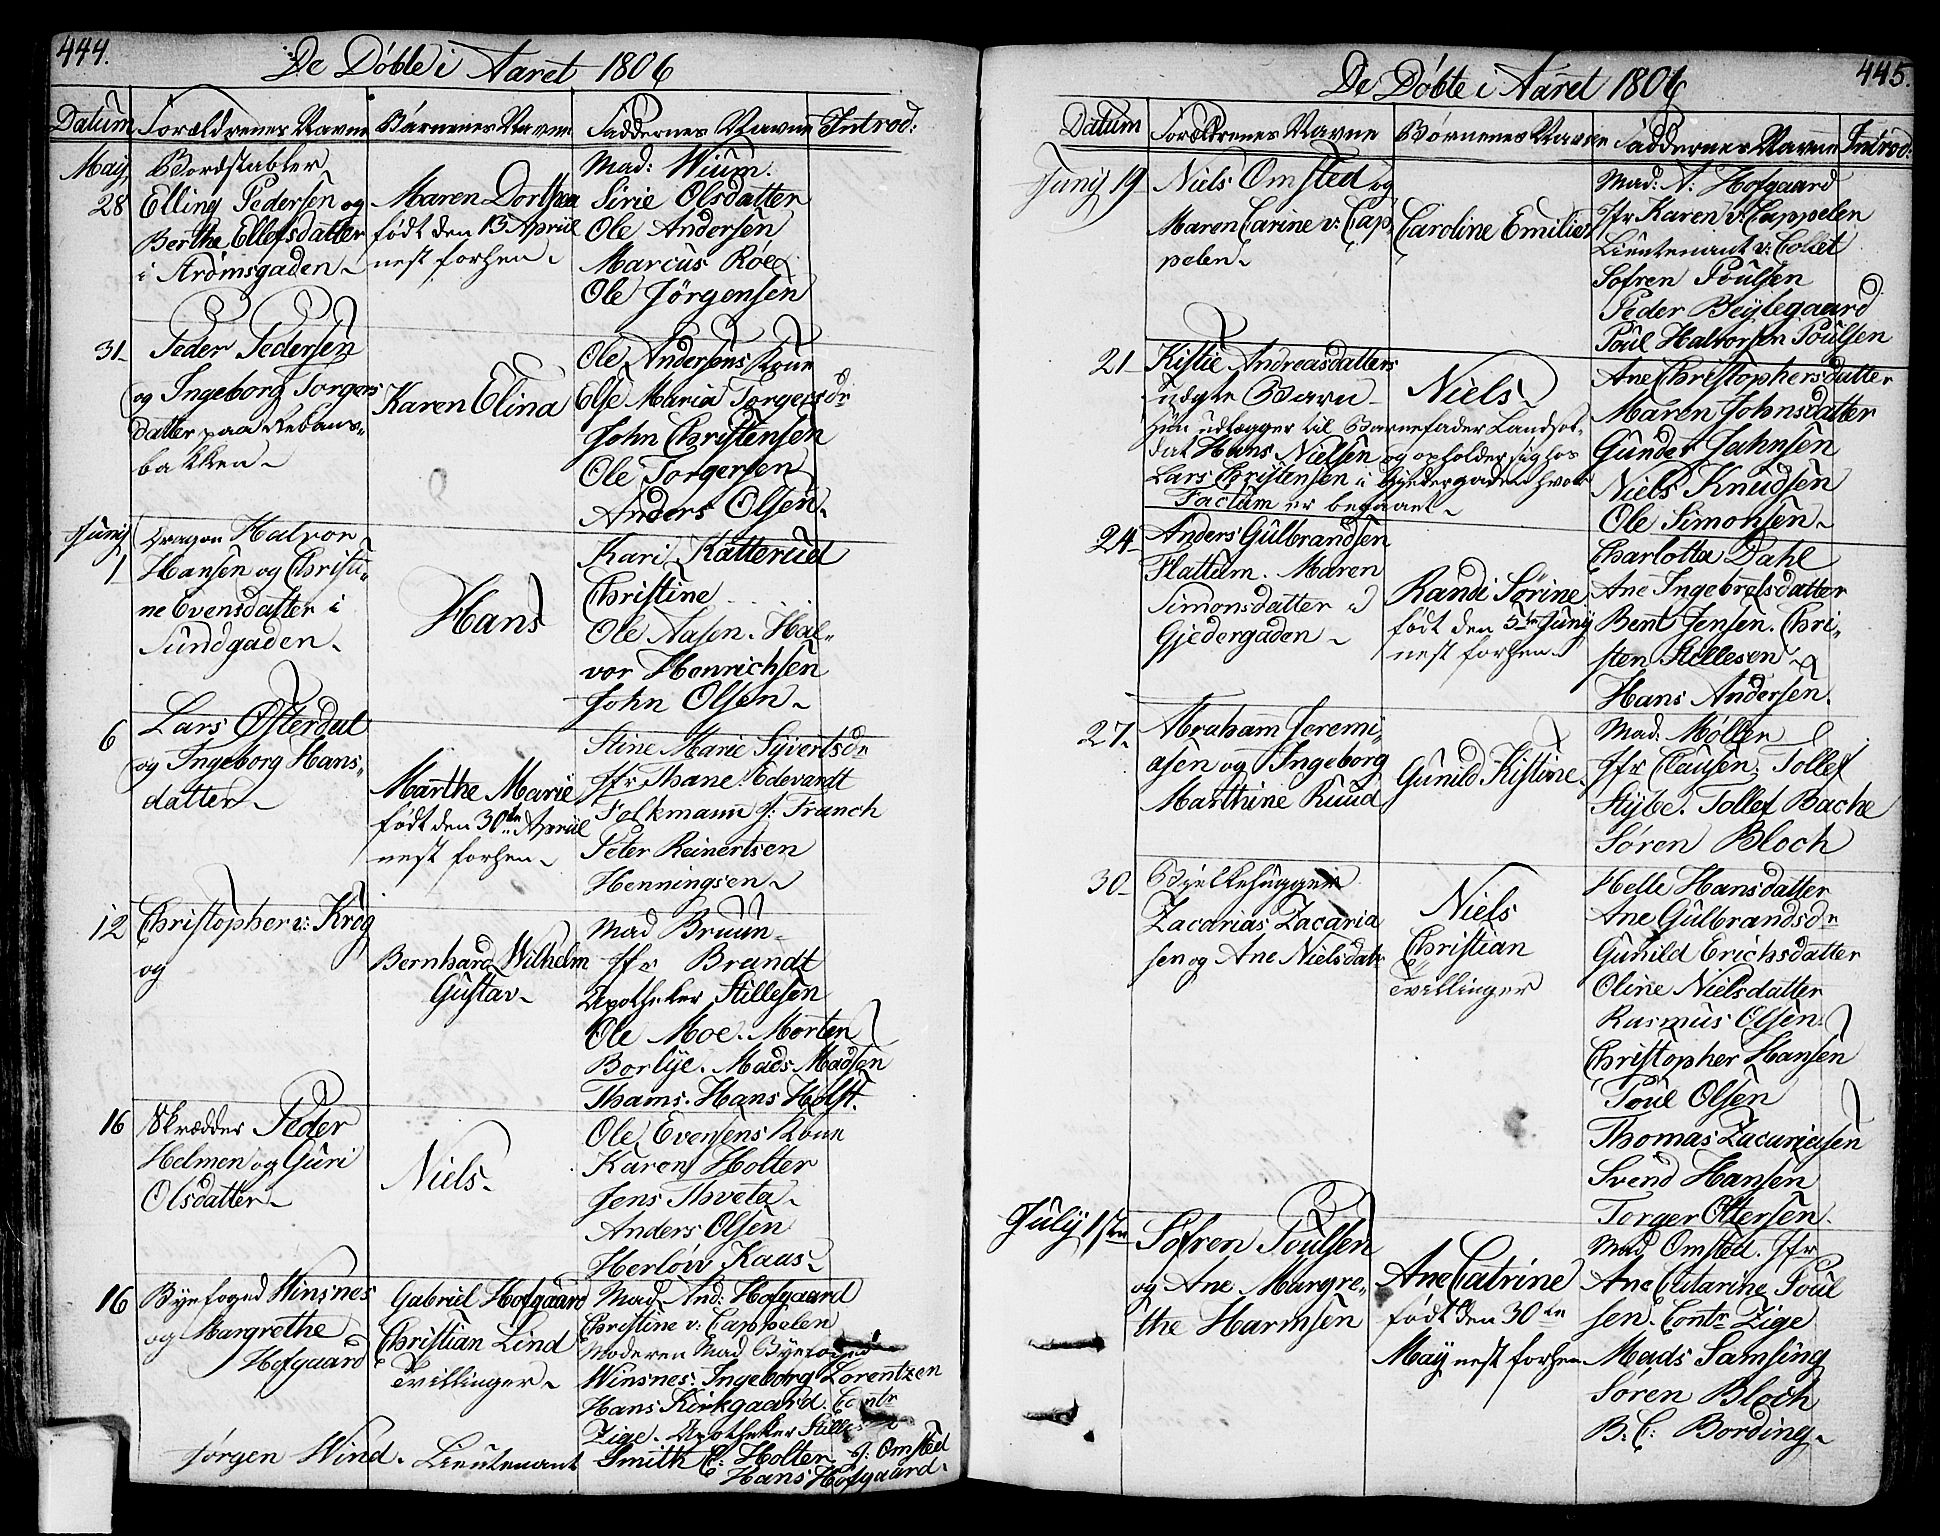 444.
De Döbte i Aaret 1806
Datum Forældrenes Navne Börnenes Navne Faddernes Navne Introd:
May 28
Bordstabler
Elling Pedersen og
Berthe Ellefsdatter
i Strömsgaden
Maren Dorthea
født den 13 April
nest forhen
Mad: Wium
Sirie Olsdatter
Ole Andersen
Marcus Röe
Ole Jörgensen
31
Peder Pedersen
og Ingeborg Torgers
datter paa
bakken
Karen Elina
Ole Andersens Kone
Else Maria Torgersdr
John Christensen
Ole Torgersen
Anders Olsen
Junij 1
Dragon Halvor
Hansen og Christi
ne Evensdatter i
Sundgaden
Hans
Kari Katterud
Christine
Ole Aasen. Hal
vor Henrichsen
John Olsen
6
Lars Österdal
og Ingeborg Hans
datter
Marthe Marie
født den 30te April
nest forhen
Stine Marie Syvertsdr
Jfr Thane. Edevardt
Folkmann J: Franch
Peter Reinertsen
Henningsen
12
Christopher v: Krog
og
Bernhard Wilhelm
Gustav
Mad Bruun
Jfr Brandt
Apotheker Stillesen
Ole Moe. Morten
Borlye. Mads Madsen
Thams. Hans Holst.
16
Skrædder Peder
Helmen og Guri
Olsdatter
Niels
Ole Evensens Kone
Karen Holter
Jens Thveta
Anders Olsen
Herlöv Kaas
16
Byefoged Winsnes
og Margrethe
Hofgaard
Gabriel Hofgaard
Christian Lind
Tvillinger
Mad And: Hofgaard
Christine v: Cappelen
Moderen Mad Byefoged
Winsnes. Ingeborg Lorentzen
Hans Kirkgaard. Contr
Zige. Apotheker Stilles
Jörgen Wind. Lieutenant Smith C: Holter J: Omsted
Hans Hofgaard
445.
De Döbte i Aaret 1806
Datum Forældrenes Navne Börnenes Navne Faddernes Navne Introd:
Junij 19
Niels Omsted og
Maren Carine v: Cap
pelen
Caroline Emilie
Mad: A: Hofgaard
Jfr Karen v: Cappelen
Lieutenant v: Collet
Sofren Poulsen
Peder Beylegaard
Poul Halvorsen Poulsen
21
Kistie Andreasdatters
uægte Barn
Hun udlægger til Barnefader Landsol
dat Hans Nielsen og opholder sig hos
Lars Christensen i Gjedergaden hvor
Factum er begaaet
Niels
Ane Christophersdatter
Maren Johnsdatter
Gunder Jahnsen
Niels Knudsen
Ole Simonsen
24
Anders Gulbrandsen
Flattum. Maren
Simonsdatter i
Gjedergaden
Randi Sörine
født den 5te Junij
nest forhen
Charlotta Dahl
Ane Ingebretsdatter
Bent Jensen. Chri
sten Stillesen
Hans Andersen.
27.
Abraham Jeremi
asen og Ingeborg
Marthine Ruud
Gunild Kistine
Mad. Möller
Jfr Clausen. Tollef
Stybe. Tollef Bache
Sören Bloch
30
Bielkehugger
Zacarias Zacaria
sen og Ane Nielsdatr
Niels
Christian
Tvillinger
Helle Hansdatter
Ane Gulbrandsdr
Gunild Erichsdatter
Oline Nielsdatter
Rasmus Olsen
Christopher Hansen
Poul Olsen
Thomas Zacariasen
Svend Hansen
Torger Ottersen.
July 1ste
Sofren Poulsen
og Ane Margre
the Harmsen
Ane Catrine
født den 30te
May nest forhen
Mad Omsted. Jfr
Ane Catarine Poul
sen. Contr Zige
Mads Samsing
Sören Bloch
B. C: Bording